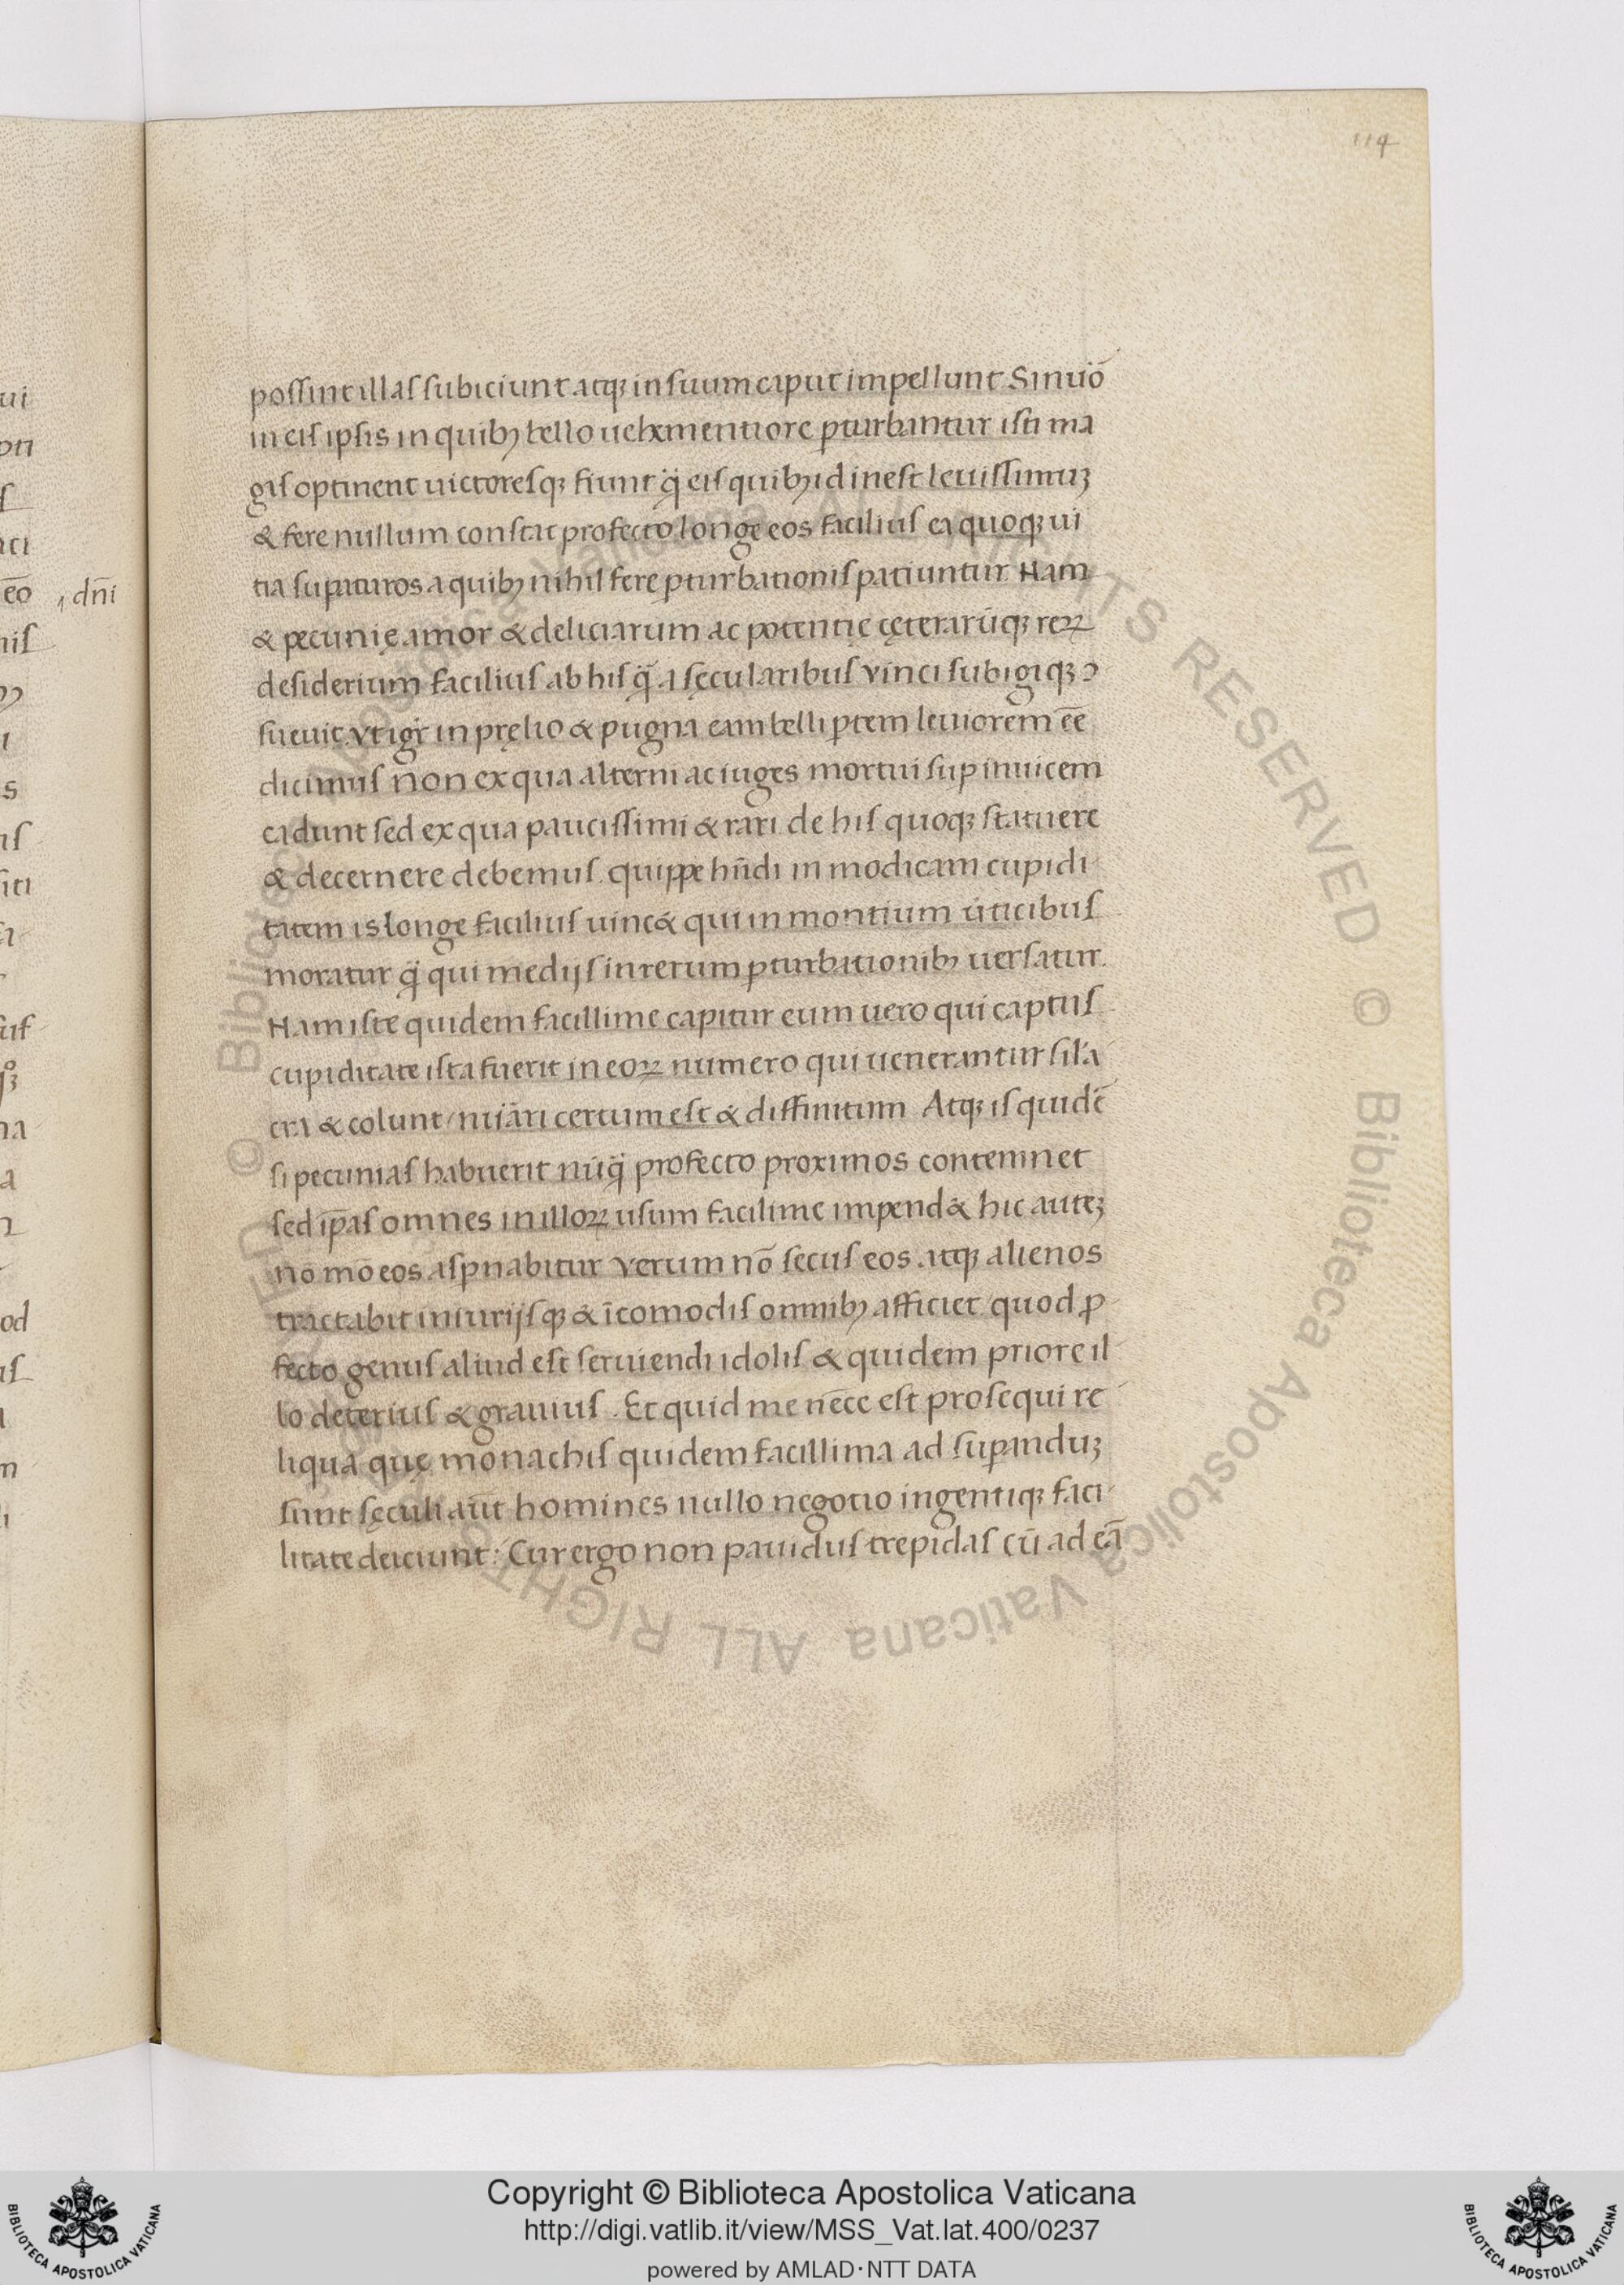 114
possint illas subiciunt atq; in suum caput impellunt Sin u̅o
in eis ipsis in quib; bello uehementiore ꝑturbantur isti ma
gis optinent uictoresq; fiunt q̃ eis quib; id inest leuissimuꝫ
& fere nullum constat profecto longe eos facilius ea quoq; ui
tia suꝑaturos a quib; nihil fere ꝑturbationis patiuntur. Nam
& pecunię amor & deliciarum ac potentię cęterarūq; reꝝ
desiderium facilius ab his q̃ a sęcularibus vinci subigiq; ↄ
sueuit. Vt igr̃ in pręlio & pugna eam belli ꝑtem leuiorem ēe
dicimus non ex qua alterni ac iuges mortui suꝑ inuicem
cadunt sed ex qua paucissimi & rari de his quoq; statuere
& decernere debemus. quippe hn̄di in modicam cupidi
tatem is longe facilius uinc& qui in montium ūticibus
moratur q̃ qui medijs in rerum ꝑturbationib; uersatur.
Nam iste quidem facillime capitur eum uero qui captus
cupiditate ista fuerit in eoꝝ numero qui uenerantur sil̃a
cra & colunt / nūari certum est & diffinitum. Atq; is quidē
si pecunias habuerit nūq̃ profecto proximos contemnet
sed ip̄as omnes in illoꝝ usum facilime impend& hic auteꝫ
nō mō eos asꝑnabitur verum nō secus eos atq; alienos
tractabit iniurijsq; & īcomodis omnib; afficiet / quod ꝓ
fecto genus aliud est seruiendi idolis & quidem priore il
lo deterius & grauius. Et quid me nēce est prosequi re
liqua quę monachis quidem facillima ad suꝑanduꝫ
sunt sęculi aūt homines nullo negotio ingentiq; faci
litate deiciunt: Cur ergo non pauidus trepidas cū ad eā
dn̄i
Copyright © Biblioteca Apostolica Vaticana
http://digi.vatlib.it/view/MSS_Vat.lat.400/0237
powered by AMLAD·NTT DATA
BIBLIOTECA APOSTOLICA VATICANA
BIBLIOTECA APOSTOLICA VATICANA
© Biblioteca Apostolica Vaticana ALL RIGHTS RESERVED © Biblioteca Apostolica Vaticana ALL RIGHTS RESERVED